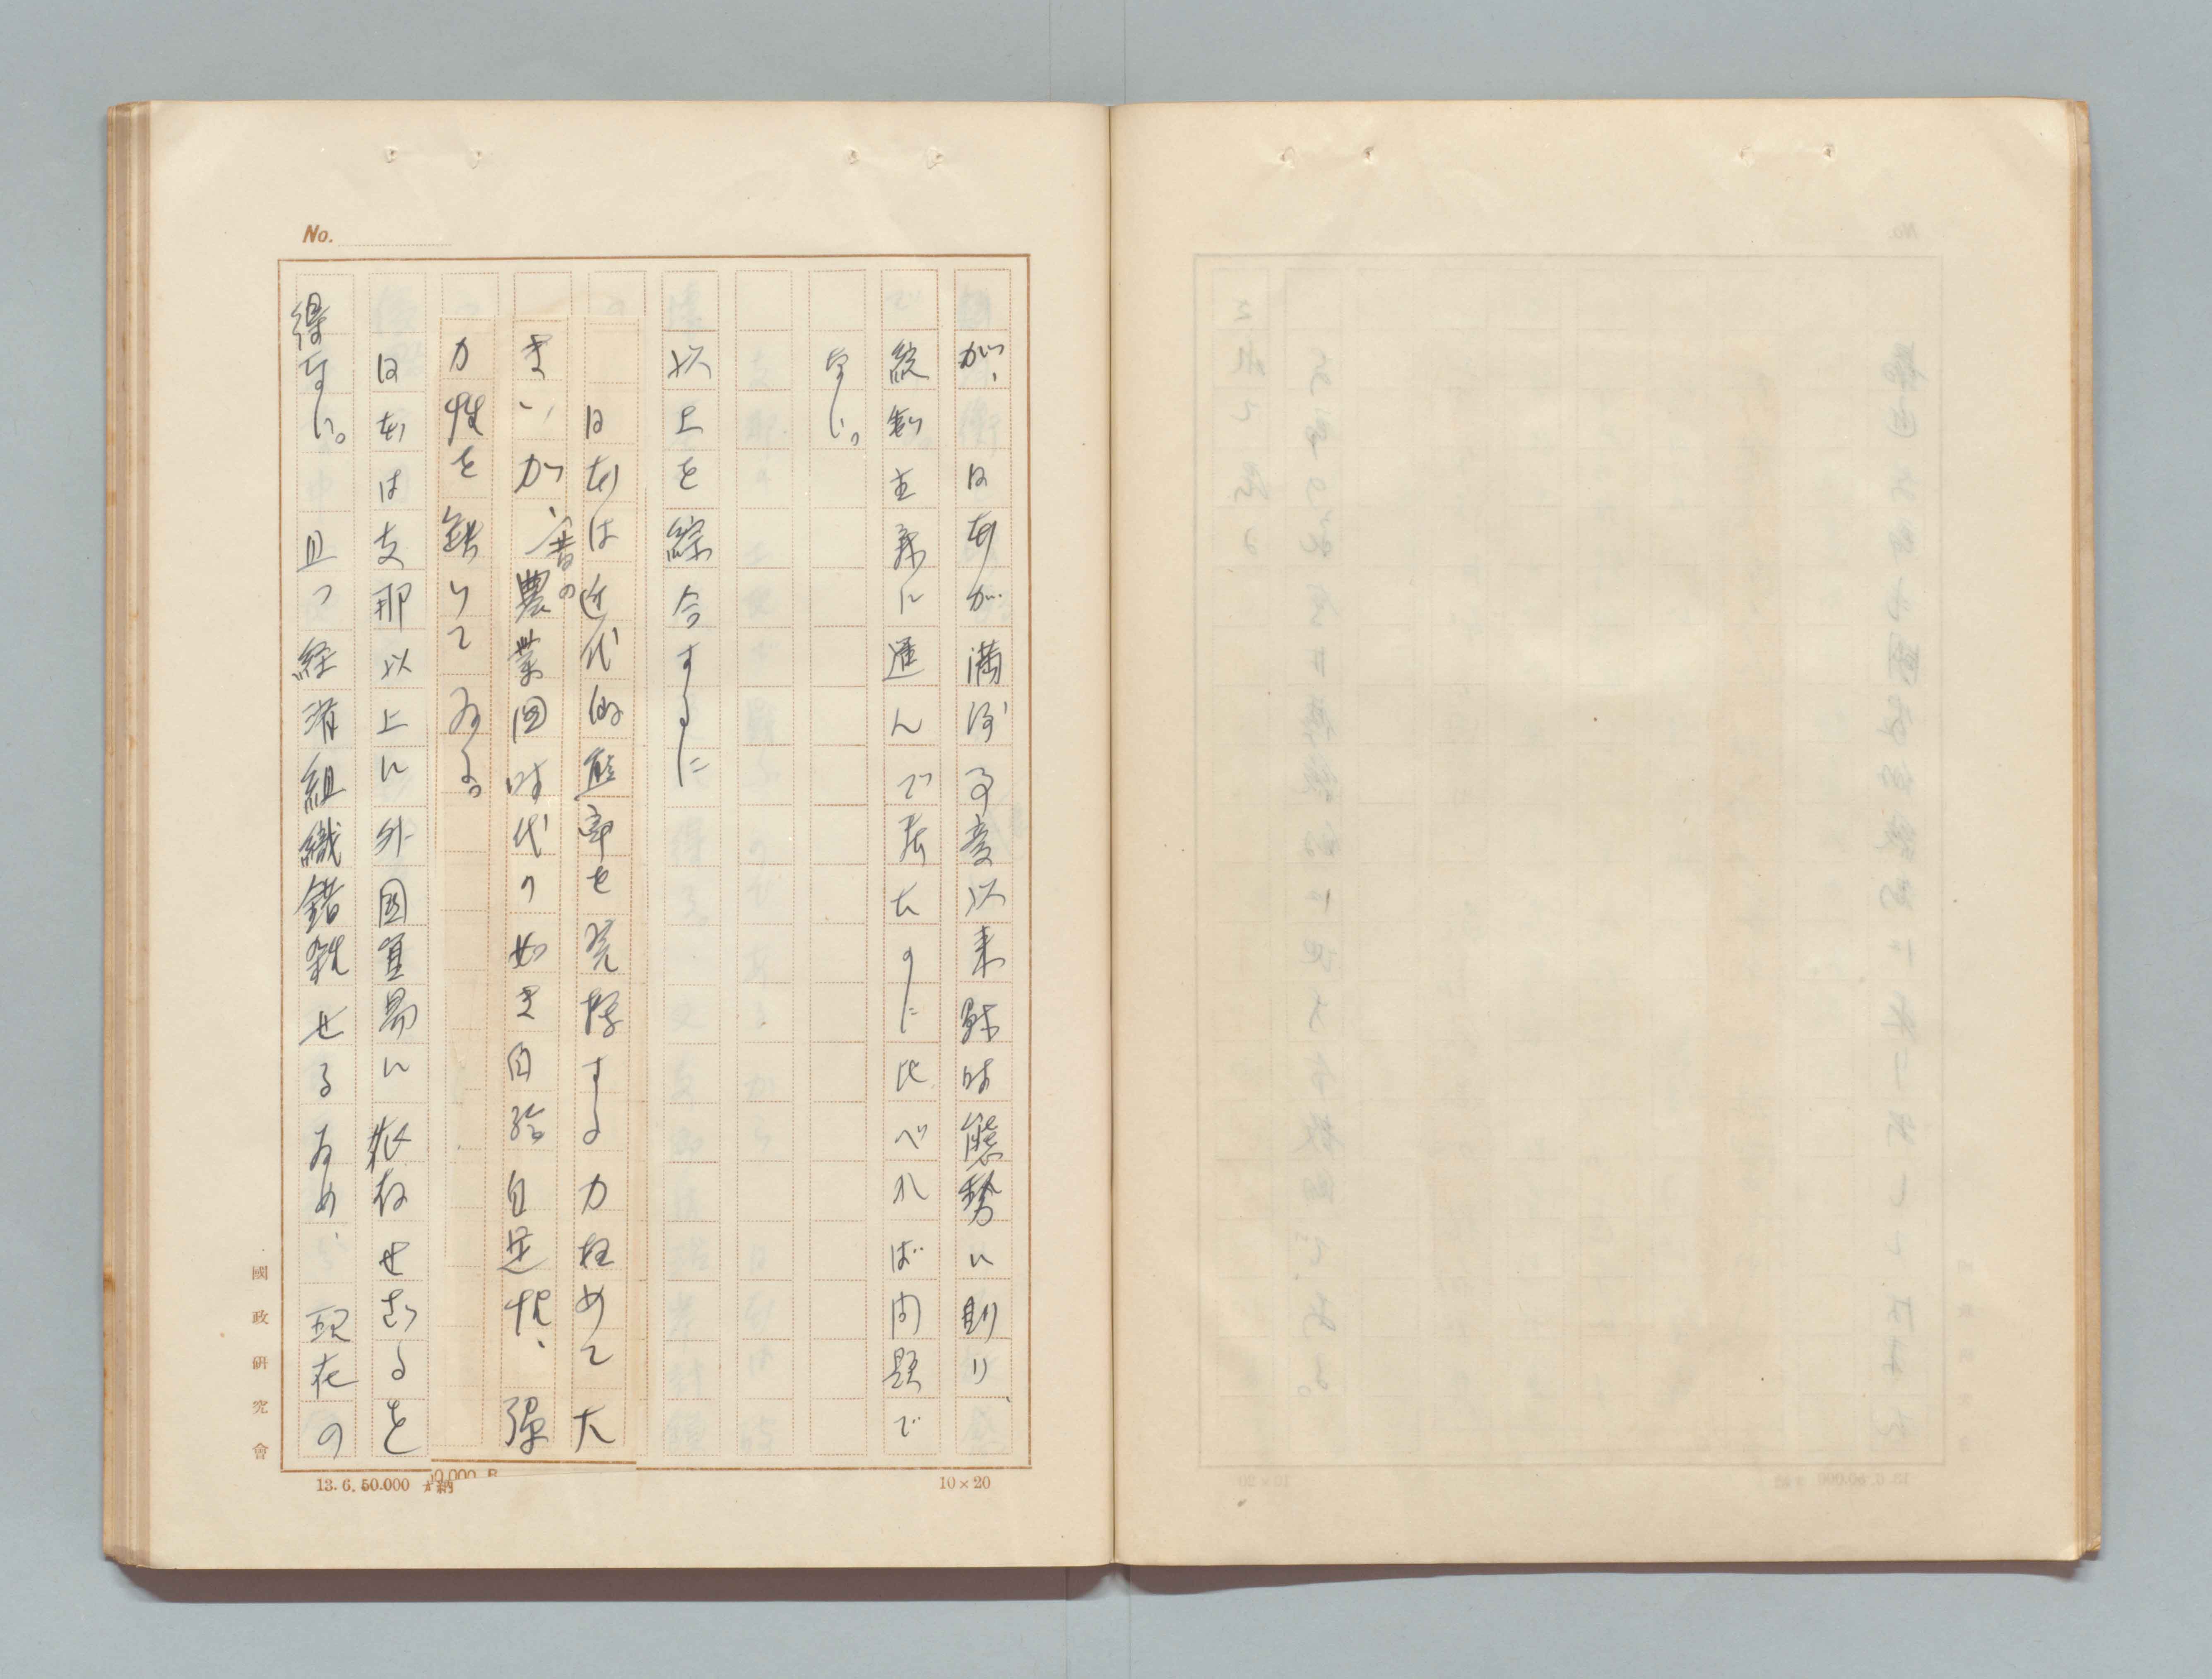 No.
が、日本が満洲事変以来戦時態勢に則り、
統制主義に進んで来たのに比べれば問題で
ない。
以上を綜合するに
日本は近代的戦争を発揮する力極めて大
きいが、昔の農業国時代の如き自給自足性、弾
力性を缺いてゐる。
日本は支那以上に外國貿易に依存せざるを
得ない。且つ経済組織錯雑せるため、現在の
國政研究會
13.6.50.000
10×20